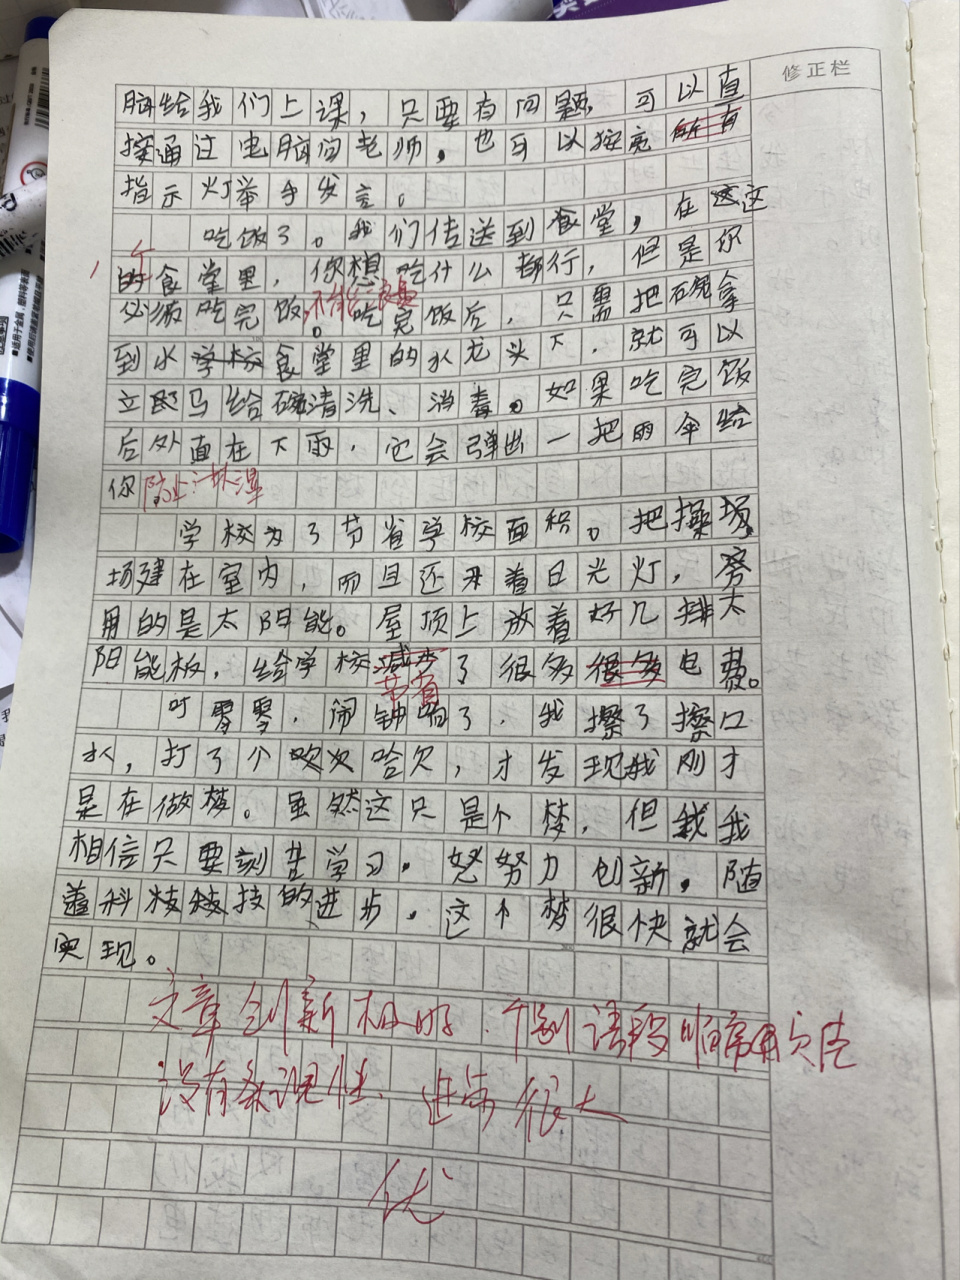 修正栏
脑给我们上课，只要有问题，可以直
接通过电脑问老师，也可以按亮所有
指示灯举手发言。
吃饭了。我们传送到食堂，在这这
个
的食堂里，你想吃什么都行，但是你
必须吃完饭。吃完饭后，只需把碗拿
到水学校食堂里的水龙头下，就可以
立即马给碗清洗、消毒。如果吃完饭
后外直在下雨，它会弹出一把雨伞给
你防止淋湿
学校为了节省学校面积。把操场
场建在室内，而且还采着日光灯，旁
用的是太阳能。屋顶上放着好几排太
阳能板，给学校减少了很多很多电费。
节省
叮零零，闹钟响了，我擦了擦口
水，打了个吹次哈欠，才发现我刚才
是在做梦。虽然这只是个梦，但我我
相信只要刻苦学习，怒努力创新，随
着科枝技技的进步，这个梦很快就会
实现。
文章创新极好，个别语段顺序再欠佳
没有条理性，进步很大
优